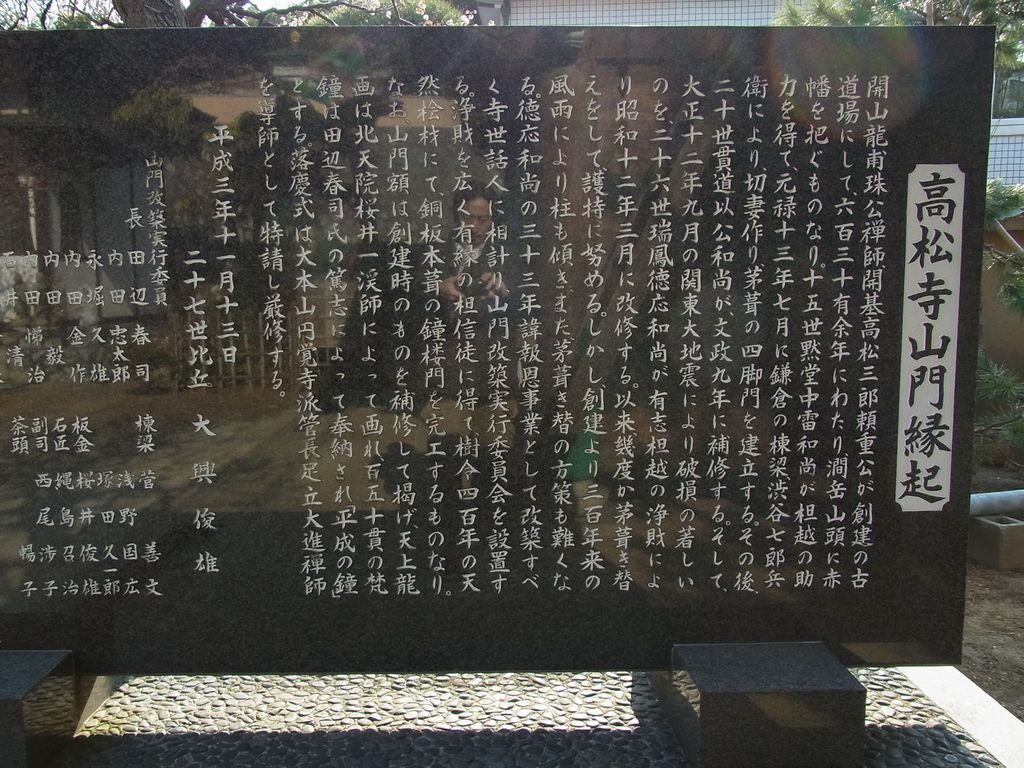 高松寺山門縁起
開山龍甫珠公禅師開基高松三郎頼重公が創建の古
道場にして六百三十有余年にわたり澗岳山頭に赤
幡を把ぐものなり十五世黙堂中雷和尚が担越の助
力を得て元禄十三年七月に鎌倉の棟梁渋谷七郎兵
衛により切妻作り茅葺の四脚門を建立する。その後、
二十世貫道以公和尚が、文政九年に補修する。そして、
大正十二年九月の関東大地震により破損の著しい
のを二十六世瑞鳳徳応和尚が有志担越の浄財によ
り昭和十二年三月に改修する。以来幾度か茅葺き替
えをして護持に努める。しかし創建より三百年来の
風雨により柱も傾きまた茅葺き替の方策も難くな
る。徳応和尚の三十三年諱報恩事業として改築すべ
く寺世話人に相計り山門改築実行委員会を設置す
る。浄財を広く有縁の担信徒に得て、樹令四百年の天
然桧材にて、銅板本葺の鐘楼門を完工するものなり。
なお、山門額は創建時のものを補修して掲げ、天上龍
画は北天院桜井一渓師によって画れ百五十貫の梵
鐘は田辺春司氏の篤志によって奉納され「平成の鐘」
とする。落慶式は大本山円覚寺派管長足立大進禅師
を導師として特請し厳修する。
平成三年十一月十三日
二十七世比丘 大興俊雄
山門改築実行委員
長 田辺春司 棟梁 菅善文
内田忠太郎 浅野国広
永堀久雄 塚田久一郎
内田金作 板金 桜井俊雄
内田毅 石匠 縄島召治
内田悌治 副司 渉子
石井清 茶頭 西尾暢子